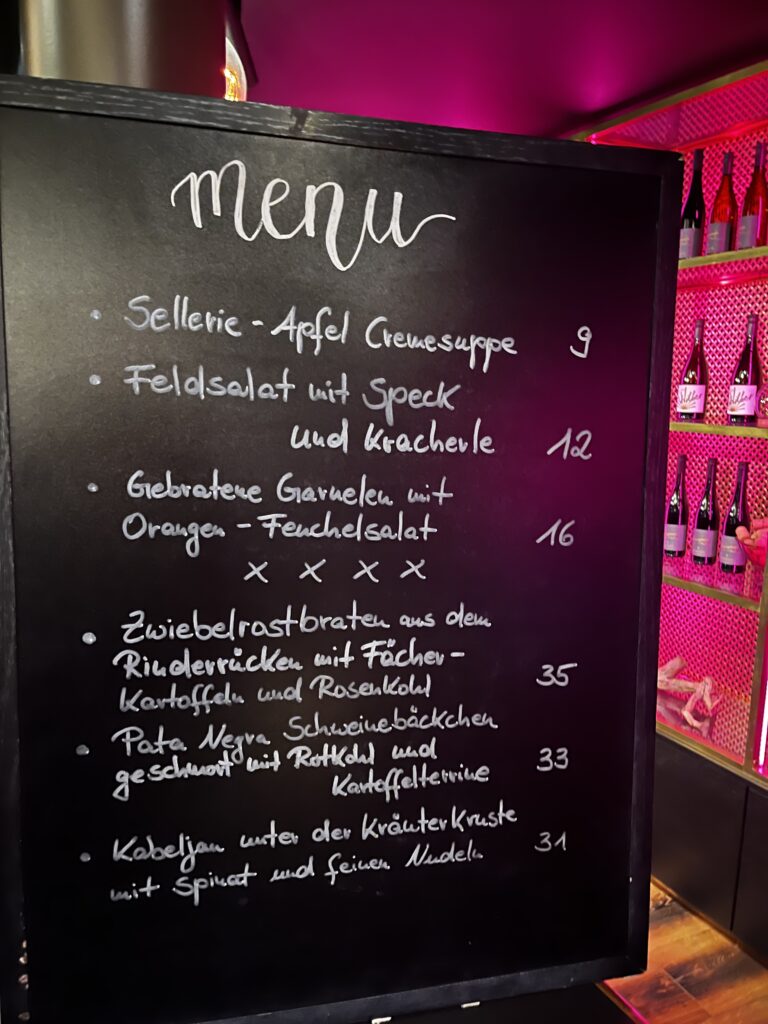 menu
• Sellerie - Apfel Cremesuppe 9
• Feldsalat mit Speck
und Kracherle 12
• Gebratene Garnelen mit
Orangen - Fenchelsalat 16
x x x x
• Zwiebelrostbraten aus dem
Rinderrücken mit Fächer-
Kartoffeln und Rosenkohl 35
• Pata Negra Schweinebäckchen
geschmort mit Rotkohl und
Kartoffelterrine 33
• Kabeljau unter der Kräuterkruste 31
mit Spinat und feinen Nudeln